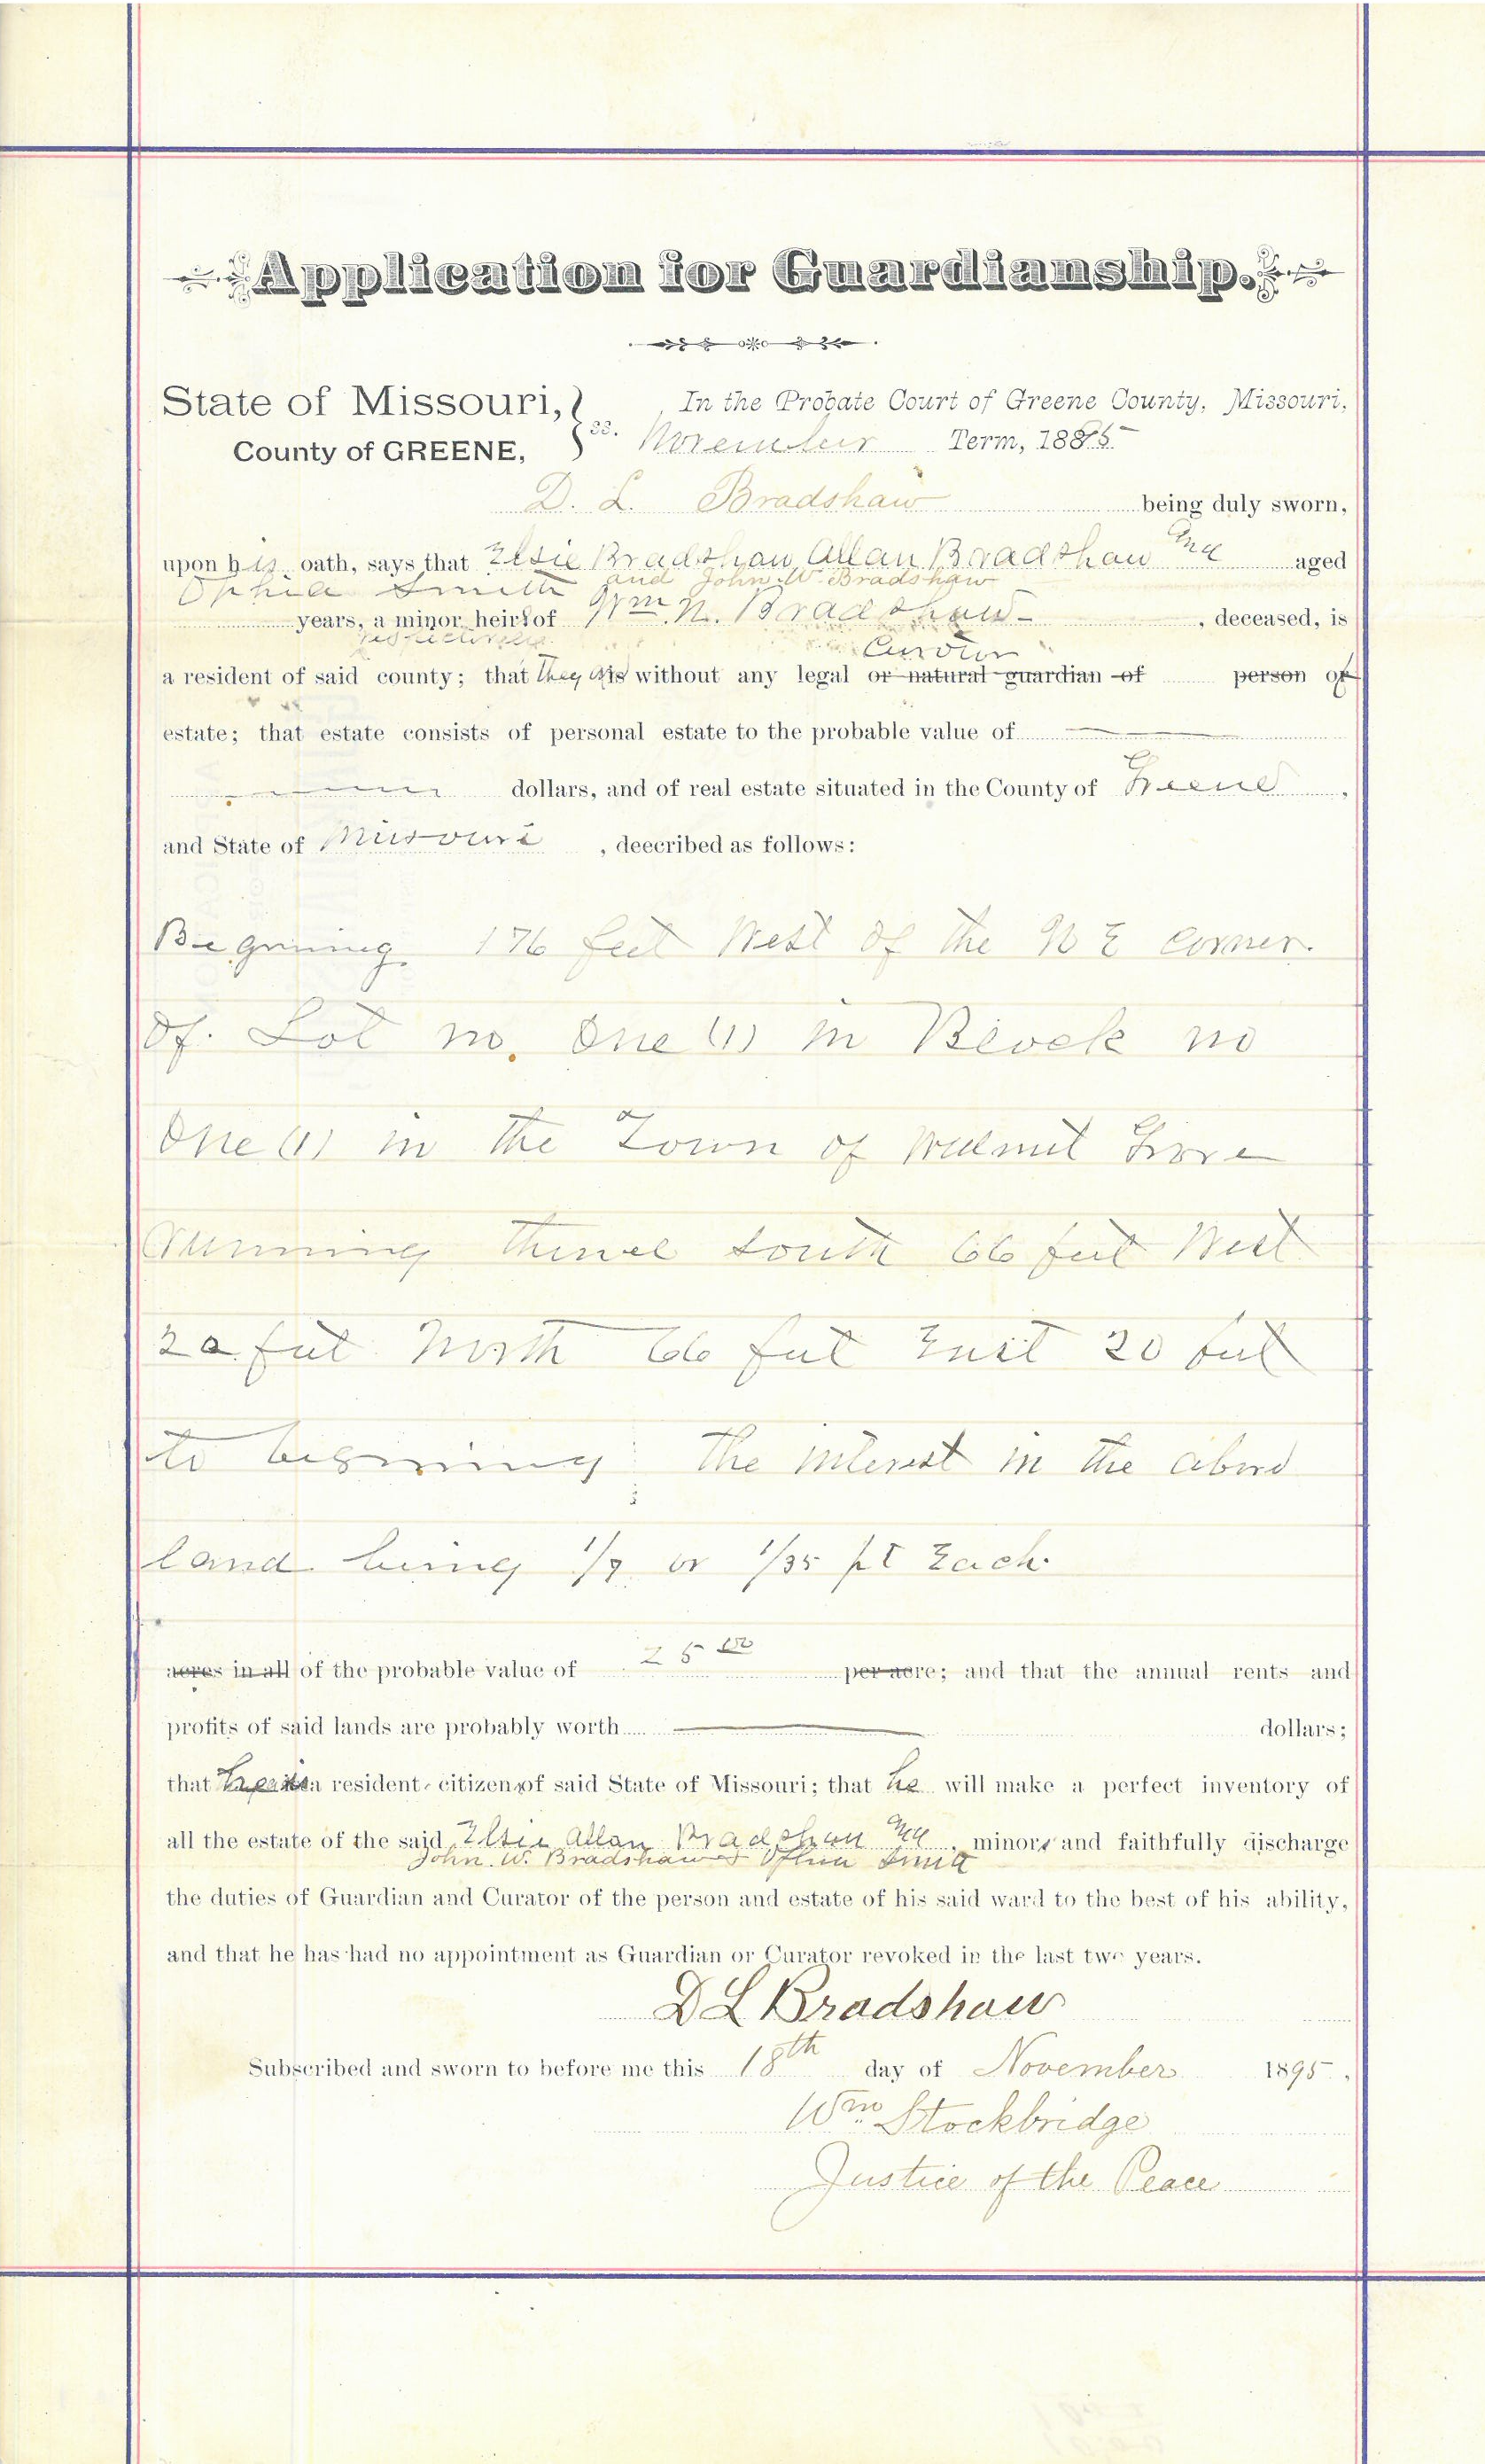 Application for Guardianship.
State of Missouri, } ss. In the Probate Court of Greene County, Missouri,
County of GREENE, November Term, 1895
D. L. Bradshaw being duly sworn,
upon his oath, says that Elsie Bradshaw Allan Bradshaw aged
Ophia Smith and John W. Bradshaw
years, a minor heirs of Wm. N. Bradshaw , deceased, is
respectively
Curator
a resident of said county; that they is without any legal or natural guardian of person or
estate; that estate consists of personal estate to the probable value of
dollars, and of real estate situated in the County of Greene ,
and State of Missouri , deecribed as follows:
Begnining 176 feet West of the N E corner.
Of. Lot no. One (1) in Block no
One (1) in the Town of Walnut Grove
Running thence South 66 feet West
20 feet North 66 feet East 20 feet
to begnining The interest in the above
land being 1/7 or 1/35 pt Each.
acres in all of the probable value of 25 00 per acre; and that the annual rents and
profits of said lands are probably worth dollars;
that he is a resident citizen of said State of Missouri; that he will make a perfect inventory of
all the estate of the said Elsie Allan Bradshaw , minors and faithfully discharge
John. W. Bradshaw Ophia Smith
the duties of Guardian and Curator of the person and estate of his said ward to the best of his ability,
and that he has had no appointment as Guardian or Curator revoked in the last two years.
D L Bradshaw
Subscribed and sworn to before me this 18th day of November 1895 .
Wm Stockbridge
Justice of the Peace